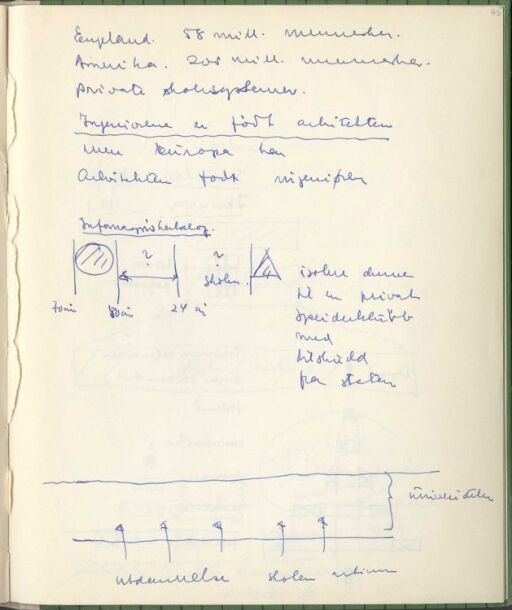 England. 58 mill. mennesker.
Amerika. 200 mill. mennesker.
private skolesystemer.
Ingeniørene er født arkitekter
men Europa har
Arkitekten født ingeniører
Informasjonskatalog.
? ?
skolen. 4
70 min 80 min 24
isolere denne
til en privat
speiderklubb
med
tilskudd
fra staten
Universitetet
utdannelse skolen artium
45